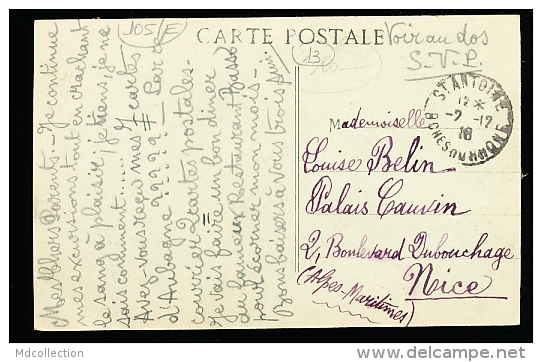 105/E
CARTE POSTALE
13
Voir au dos
S.V.P.
ST ANTOINE
12 *
-2 -12
18
BCHES DU RHONE
Mademoiselle
Louise Belin
Palais Cauvin
2, Boulevard Dubouchage
Nice
(Alpes-Maritimes)
Mes Chers Parents - Je continue
mes excursions tout en crachant
le sang à plaisir, je tiens, je ne
sais comment....
Avez-vous reçu mes 7 cartes
d'Aubagne ????? -
courrier 2 cartes postales.
Je vais faire un bon dîner
au fameux Restaurant Basso
pour écorner mon mois -
Bons baisers à vous trois
Mdcollection
http://www.delcampe.net